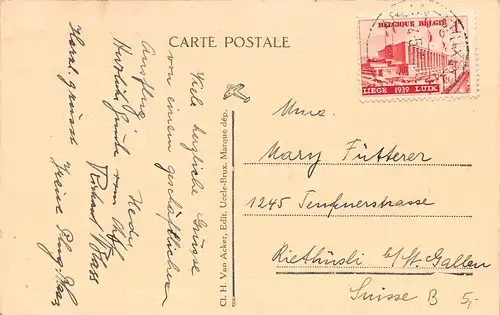 CARTE POSTALE
BELGIQUE BELGIË
LIÈGE 1939 LUIK
Viele herzliche Grüsse
von einem geschäftlichen
Ausflug
Herzliche Grüsse vom
Richard Blass
Herzl. gruss
Cl. H. Van Acker, Edit. Uccle-Brux. Marque dép.
Mme.
Mary Fütterer
1245 Teufenerstrasse
Riethüsli b/St. Gallen
Suisse B 5,-